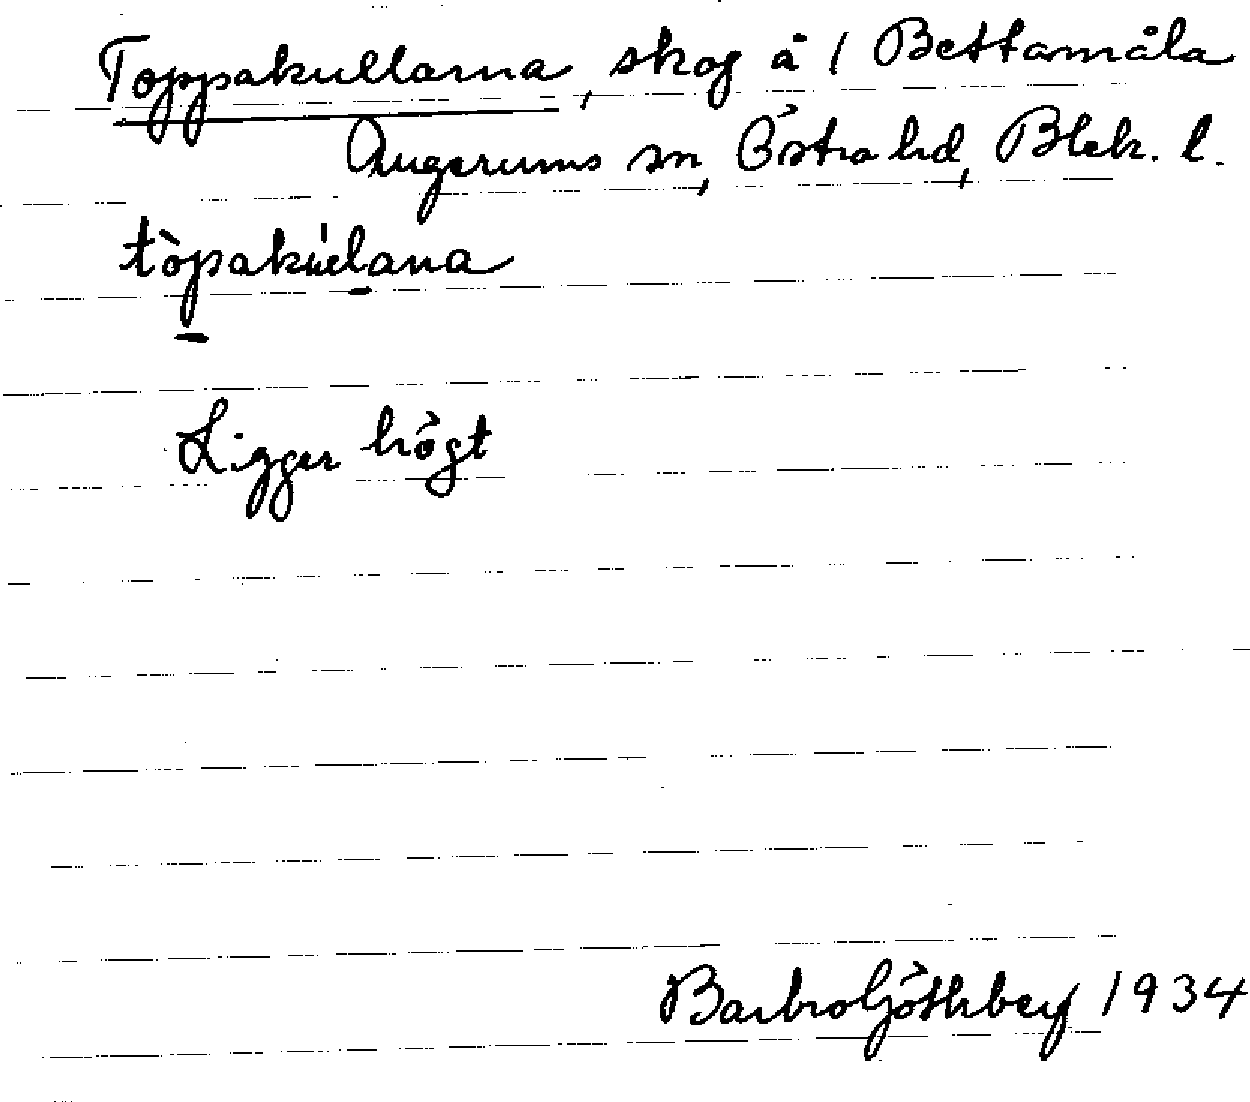 Toppakullarna, skog å 1 Bettamåla
Augerums sn, Östra hd, Blek. l.
tòpakúlana
Ligger högt
Barbro Göthberg 1934